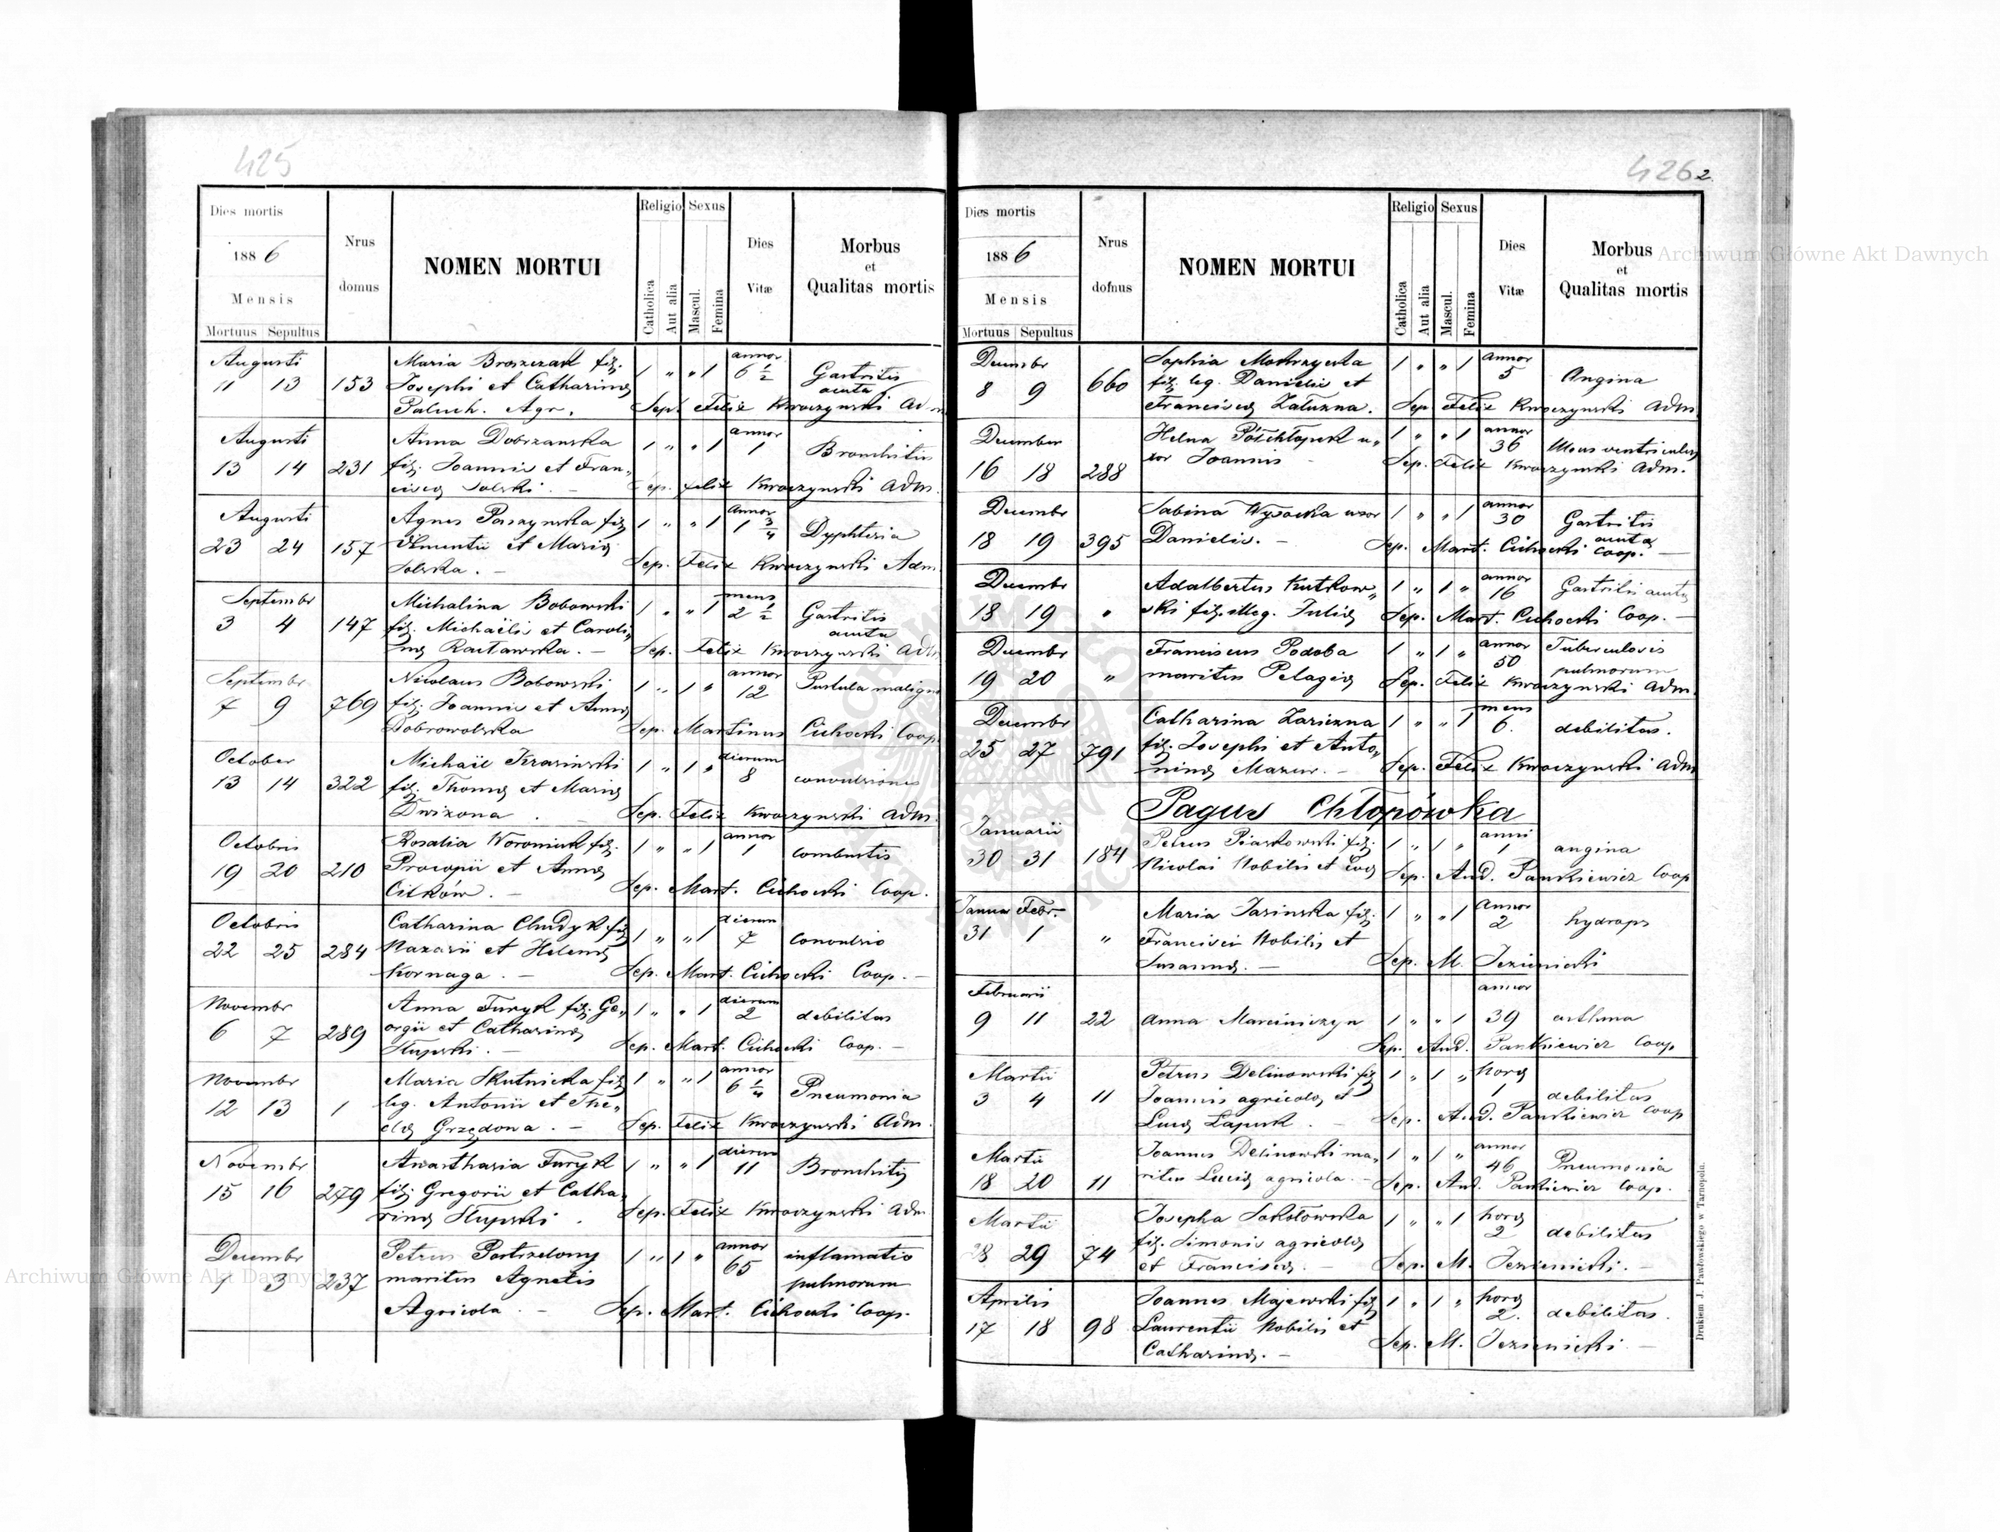 425
Dies mortis
1886
Mensis
Mortuus Sepultus
Nrus domus
NOMEN MORTUI
Religio
Catholica
Aut alia
Sexus
Mascul.
Femina
Dies Vitæ
Morbus
et
Qualitas mortis
Augusti annor
11 13 153 Maria Broszczak filj. 1 " " 1 6 1/2 Gastritis
Josephi et Catharinæ acuta
Paluch. Agr. Sep. Felix Kwoczynski Adm
Augusti Anna Dobrzanska 1 " " 1 annor
13 14 231 filj. Joannis et Fran- 1 Bronchitis
ciscæ Solski. — Sep. Felix Kwoczynski Adm.
Augusti Agnes Paszynska filj 1 " " 1 annor
23 24 157 et Mariæ 1 3/4 Dyphteria
Solska. — Sep. Felix Kwoczynski Adm.
Septembr Michalina Bobowski 1 " " 1 mens
3 4 147 filj. Michaëlis et Caroli- 2 1/2 Gastritis acuta
næ Racławska. — Sep. Felix Kwoczynski Adm
Septembr Nicolaus Bobowski 1 " 1 " annor
7 9 769 filj. Joannis et Annæ 12 Pustula maligna
Dobrowolska Sep. Martinus Cichocki Coop.
October Michaël Krasinski 1 " 1 " dierum
13 14 322 filj. Thomæ et Mariæ 8 convulsiones
Dwizona . — Sep. Felix Kwoczynski Adm.
Octobris Rosalia Woroniuk filj. 1 " " 1 annor
19 20 210 Procopii et Annæ 1 combustis
Citków. — Sep. Mart. Cichocki Coop.
Octobris Catharina Chudyk filj 1 " " 1 dierum
22 25 284 Nazarii et Helenæ 7 convulsio
Kornaga . — Sep. Mart. Cichocki Coop. —
Novembr Anna Furyk filj. Ge- 1 " " 1 dierum
6 7 289 orgii et Catharinæ 2 debilitas
Słupski . — Sep. Mart. Cichocki Coop. —
Novembr Maria Skutnicka filj 1 " " 1 annor
12 13 1 leg. Antonii et The- 6 1/4 Pneumonia
clæ Grzędona . — Sep. Felix Kwoczynski Adm.
Novembr Anasthasia Furyk 1 " " 1 dierum
15 16 279 filj Gregorii et Catha- 11 Bronchitis
rinæ Słupski . Sep. Felix Kwoczynski Adm.
Decembr Petrus Postrzelony 1 " 1 " annor inflamatio
1 3 237 maritus Agnetis 65 pulmorum
Agricola . — Sep. Mart. Cichocki Coop.
426 2.
Dies mortis
1886
Mensis
Mortuus Sepultus
Nrus domus
NOMEN MORTUI
Religio
Catholica
Aut alia
Sexus
Mascul.
Femina
Dies Vitæ
Morbus
et
Qualitas mortis
Decembr Sophia Mokrzycka 1 " " 1 annor
8 9 660 filj. leg. Danielis et 5 Angina
Franciscæ Załuzna. Sep. Felix Kwoczynski Adm.
December Helena u- 1 " " 1 annor
16 18 288 xor Joannis — 36 Ulcus ventriculi
Sep. Felix Kwoczynski Adm.
Decembr Sabina Wysocka uxor 1 " " 1 annor
18 19 395 Danielis. — 30 Gastritis acuta
Sep. Mart. Cichocki Coop. —
Decembr Adalbertus Kutkow- 1 " 1 " annor
18 19 " ski filj. illeg. Juliæ 16 Gastritis acuta
Sep. Mart. Cichocki Coop. —
Decembr Franciscus Podoba 1 " 1 " annor Tuberculosis
19 20 " maritus Pelagiæ 50 pulmorum
Sep. Felix Kwoczynski Adm.
Decembr Catharina Zariczna 1 " " 1 mens
25 27 791 filj. Josephi et Anto- 6. debilitas.
ninæ Mazur. — Sep. Felix Kwoczynski Adm
Pagus Chłopówka
Januarii Petrus Piaskowski filj. 1 " 1 " anni
30 31 184 Nicolai Nobilis et Evæ 1 angina
Sep. And. Pankiewicz Coop
Januar Febr. Maria Jasinska filj. 1 " " 1 annor
31 1 " Francisci Nobilis et 2 hydrops
Susannæ. — Sep. M. Jezienicki
Februarii annor
9 11 22 Anna Marciniczyn 1 " " 1 39 asthma
Sep. And. Pankiewicz Coop
Martii Petrus Delinowski filj 1 " 1 " horæ
3 4 11 Joannis agricolæ et 1 debilitas
Luciæ Łapuk . — Sep. And. Pankiewicz Coop
Martii Joannes Delinowski ma- 1 " 1 " annor
18 20 11 ritus Luciæ agricola. — 46 Pneumonia
Sep. And. Pankiewicz Coop.
Martii Josepha Sokołowska 1 " " 1 horæ
28 29 74 filj. Simonis agricolæ 2 debilitas
et Franciscæ. — Sep. M. Jezienicki. —
Aprilis Joannes Majewski filj 1 " 1 " horæ
17 18 98 Laurentii Nobilis et 2. debilitas.
Catharinæ. — Sep. M. Jezienicki —
Drukiem J. Pawłowskiego w Tarnopolu.
Archiwum Główne Akt Dawnych
Archiwum Główne Akt Dawnych